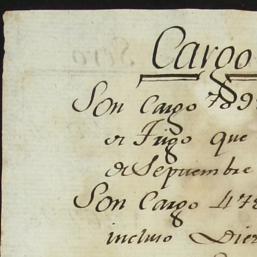 Cargo
Son Cargo 789
de Trigo que
de Septiembre
Son Cargo 478
incluso Diez